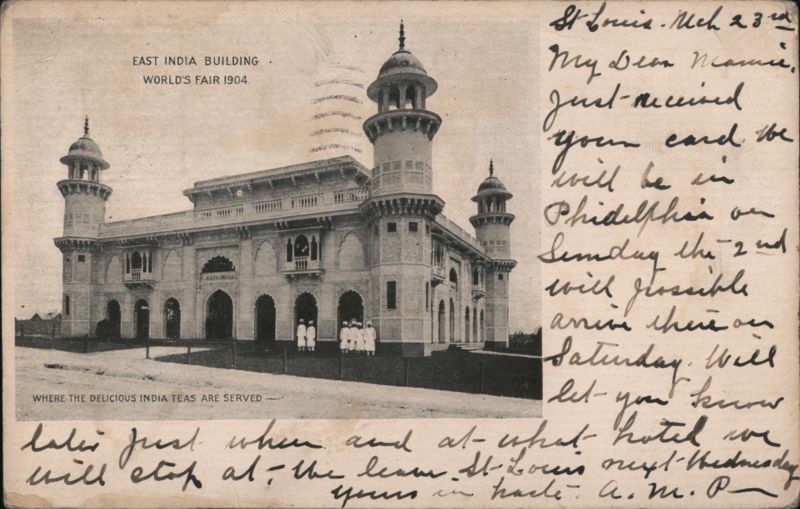 EAST INDIA BUILDING
WORLD'S FAIR 1904.
EAST INDIA
WHERE THE DELICIOUS INDIA TEAS ARE SERVED
St Louis. Mch 23rd
My Dear Mamie.
Just received
your card. We
will be in
Phidelphia on
Sunday the 2nd
will possible
arrive there on
Saturday. Will
let you know
later just when and at what hotel we
will stop at. We leave St Louis next Wednesday
yours in haste. A. M. P